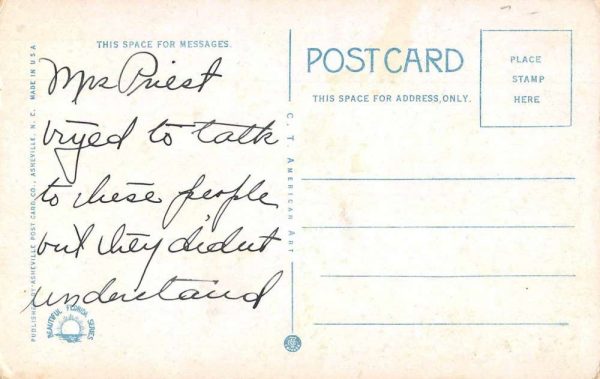 THIS SPACE FOR MESSAGES.
Mrs Priest
tryed to talk
to these people
but they didnt
understand
PUBLISHED BY ASHEVILLE POST CARD CO., ASHEVILLE, N. C. MADE IN U S A
BEAUTIFUL FLORIDA SERIES
C. T. AMERICAN ART
POST CARD
THIS SPACE FOR ADDRESS ONLY.
PLACE
STAMP
HERE